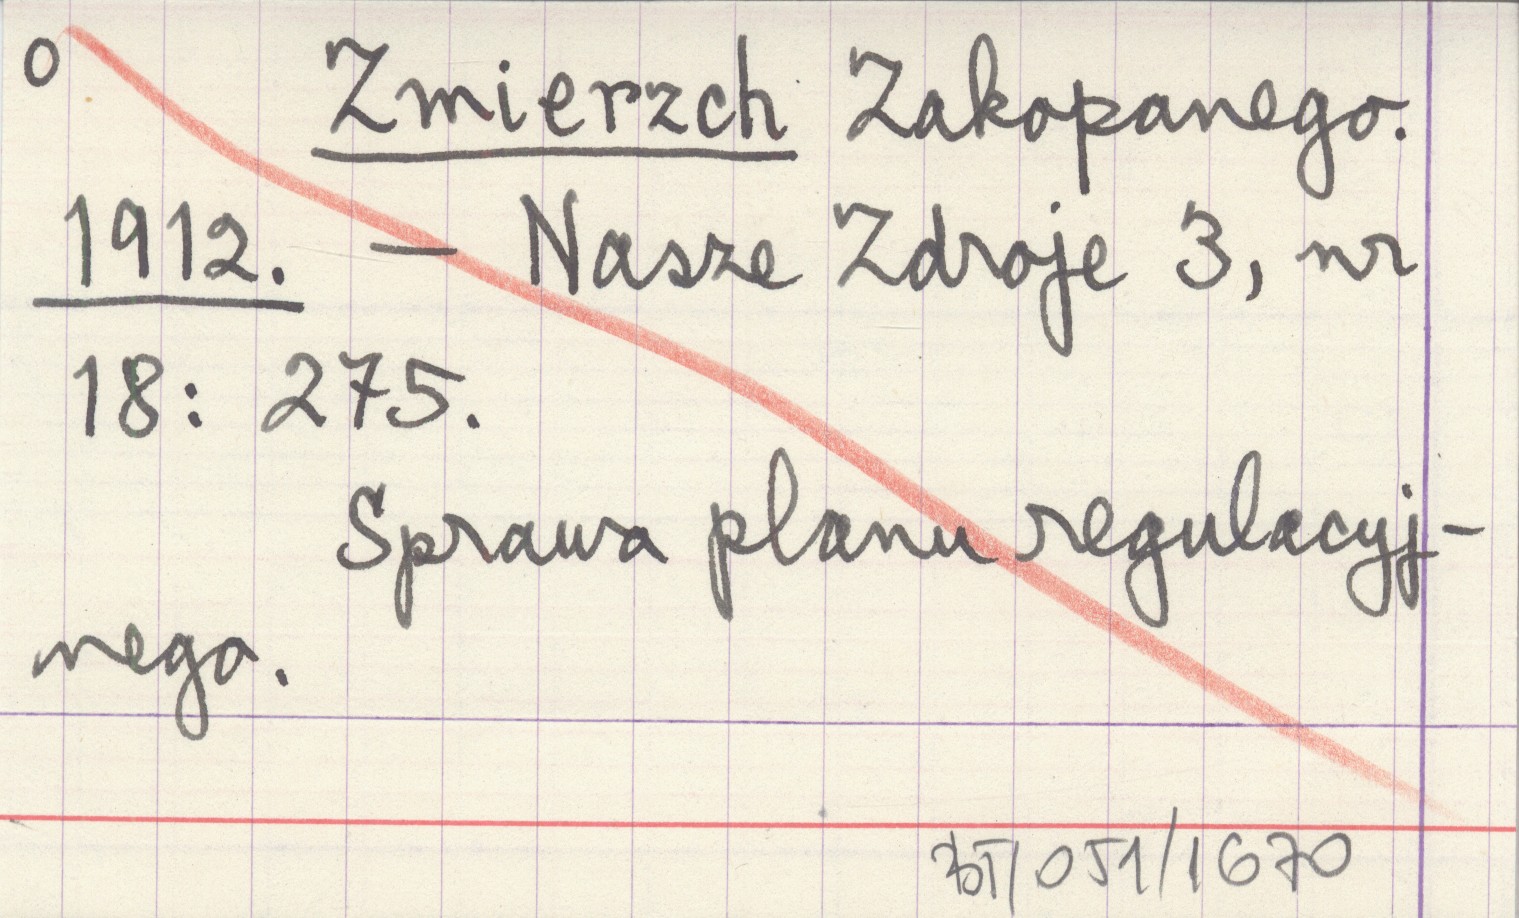 0 Zmierzch Zakopanego.
1912. — Nasze Zdroje 3, nr
18: 275.
Sprawa planu regulacyj-
nego.
/051/1670